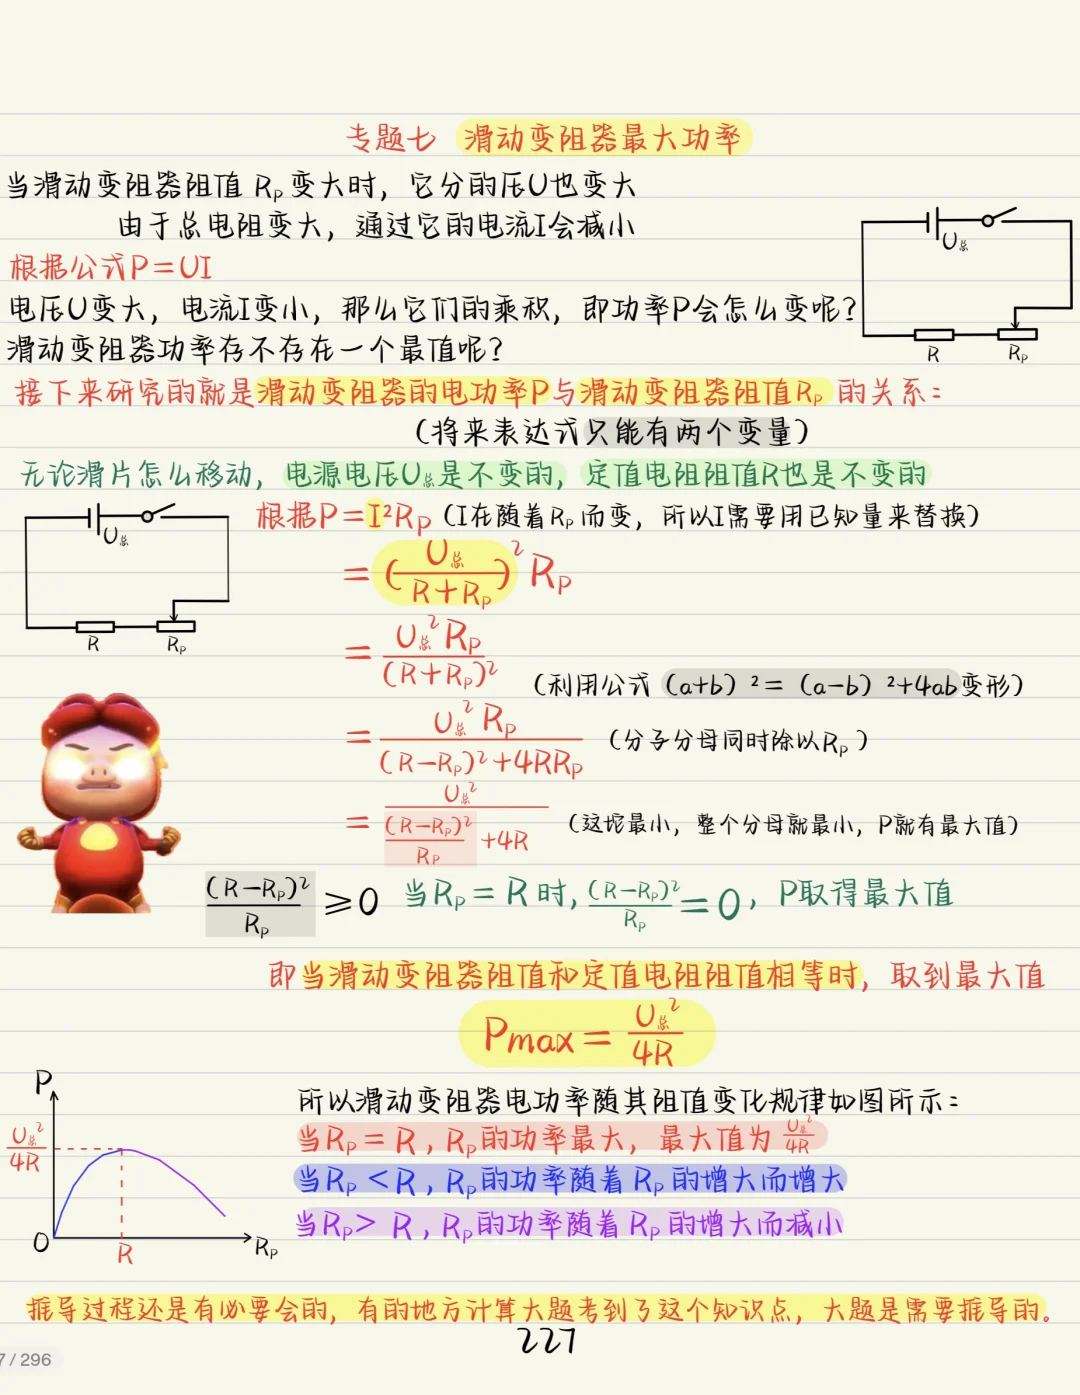 专题七 滑动变阻器最大功率
当滑动变阻器阻值 Rₚ变大时，它分的压U也变大
由于总电阻变大，通过它的电流I会减小
根据公式P=UI
电压U变大，电流I变小，那么它们的乘积，即功率P会怎么变呢？
滑动变阻器功率存不存在一个最值呢？
U总
R Rₚ
接下来研究的就是滑动变阻器的电功率P与滑动变阻器阻值Rₚ的关系：
（将来表达式只能有两个变量）
无论滑片怎么移动，电源电压U总是不变的，定值电阻阻值R也是不变的
U总
R Rₚ
根据P=I²Rₚ（I在随着Rₚ而变，所以I需要用已知量来替换）
=(U总/(R+Rₚ))²Rₚ
=U总²Rₚ/(R+Rₚ)²
（利用公式（a+b）²=（a-b）²+4ab变形）
=U总²Rₚ/((R-Rₚ)²+4RRₚ) （分子分母同时除以Rₚ）
=U总²/((R-Rₚ)²/Rₚ+4R) （这坨最小，整个分母就最小，P就有最大值）
(R-Rₚ)²/Rₚ≥0 当Rₚ=R时，(R-Rₚ)²/Rₚ=0，P取得最大值
即当滑动变阻器阻值和定值电阻阻值相等时，取到最大值
Pmax=U总²/4R
P
U总²/4R
O R Rₚ
所以滑动变阻器电功率随其阻值变化规律如图所示：
当Rₚ=R，Rₚ的功率最大，最大值为U总²/4R
当Rₚ<R，Rₚ的功率随着Rₚ的增大而增大
当Rₚ>R，Rₚ的功率随着Rₚ的增大而减小
推导过程还是有必要会的，有的地方计算大题考到了这个知识点，大题是需要推导的。
227
7/296